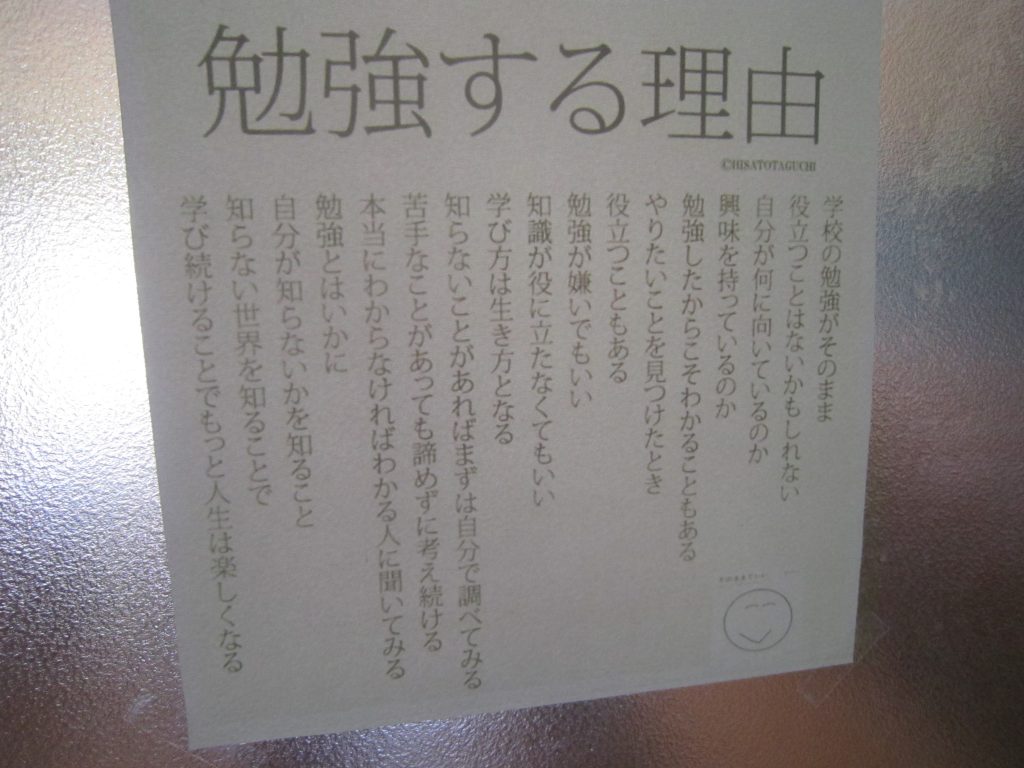 勉強する理由
©HISATOTAGUCHI
学校の勉強がそのまま
役立つことはないかもしれない
自分が何に向いているのか
興味を持っているのか
勉強したからこそわかることもある
やりたいことを見つけたとき
役立つこともある
勉強が嫌いでもいい
知識が役に立たなくてもいい
学び方は生き方となる
知らないことがあればまずは自分で調べてみる
苦手なことがあっても諦めずに考え続ける
本当にわからなければわかる人に聞いてみる
勉強とはいかに
自分が知らないかを知ること
知らない世界を知ることで
学び続けることでもっと人生は楽しくなる